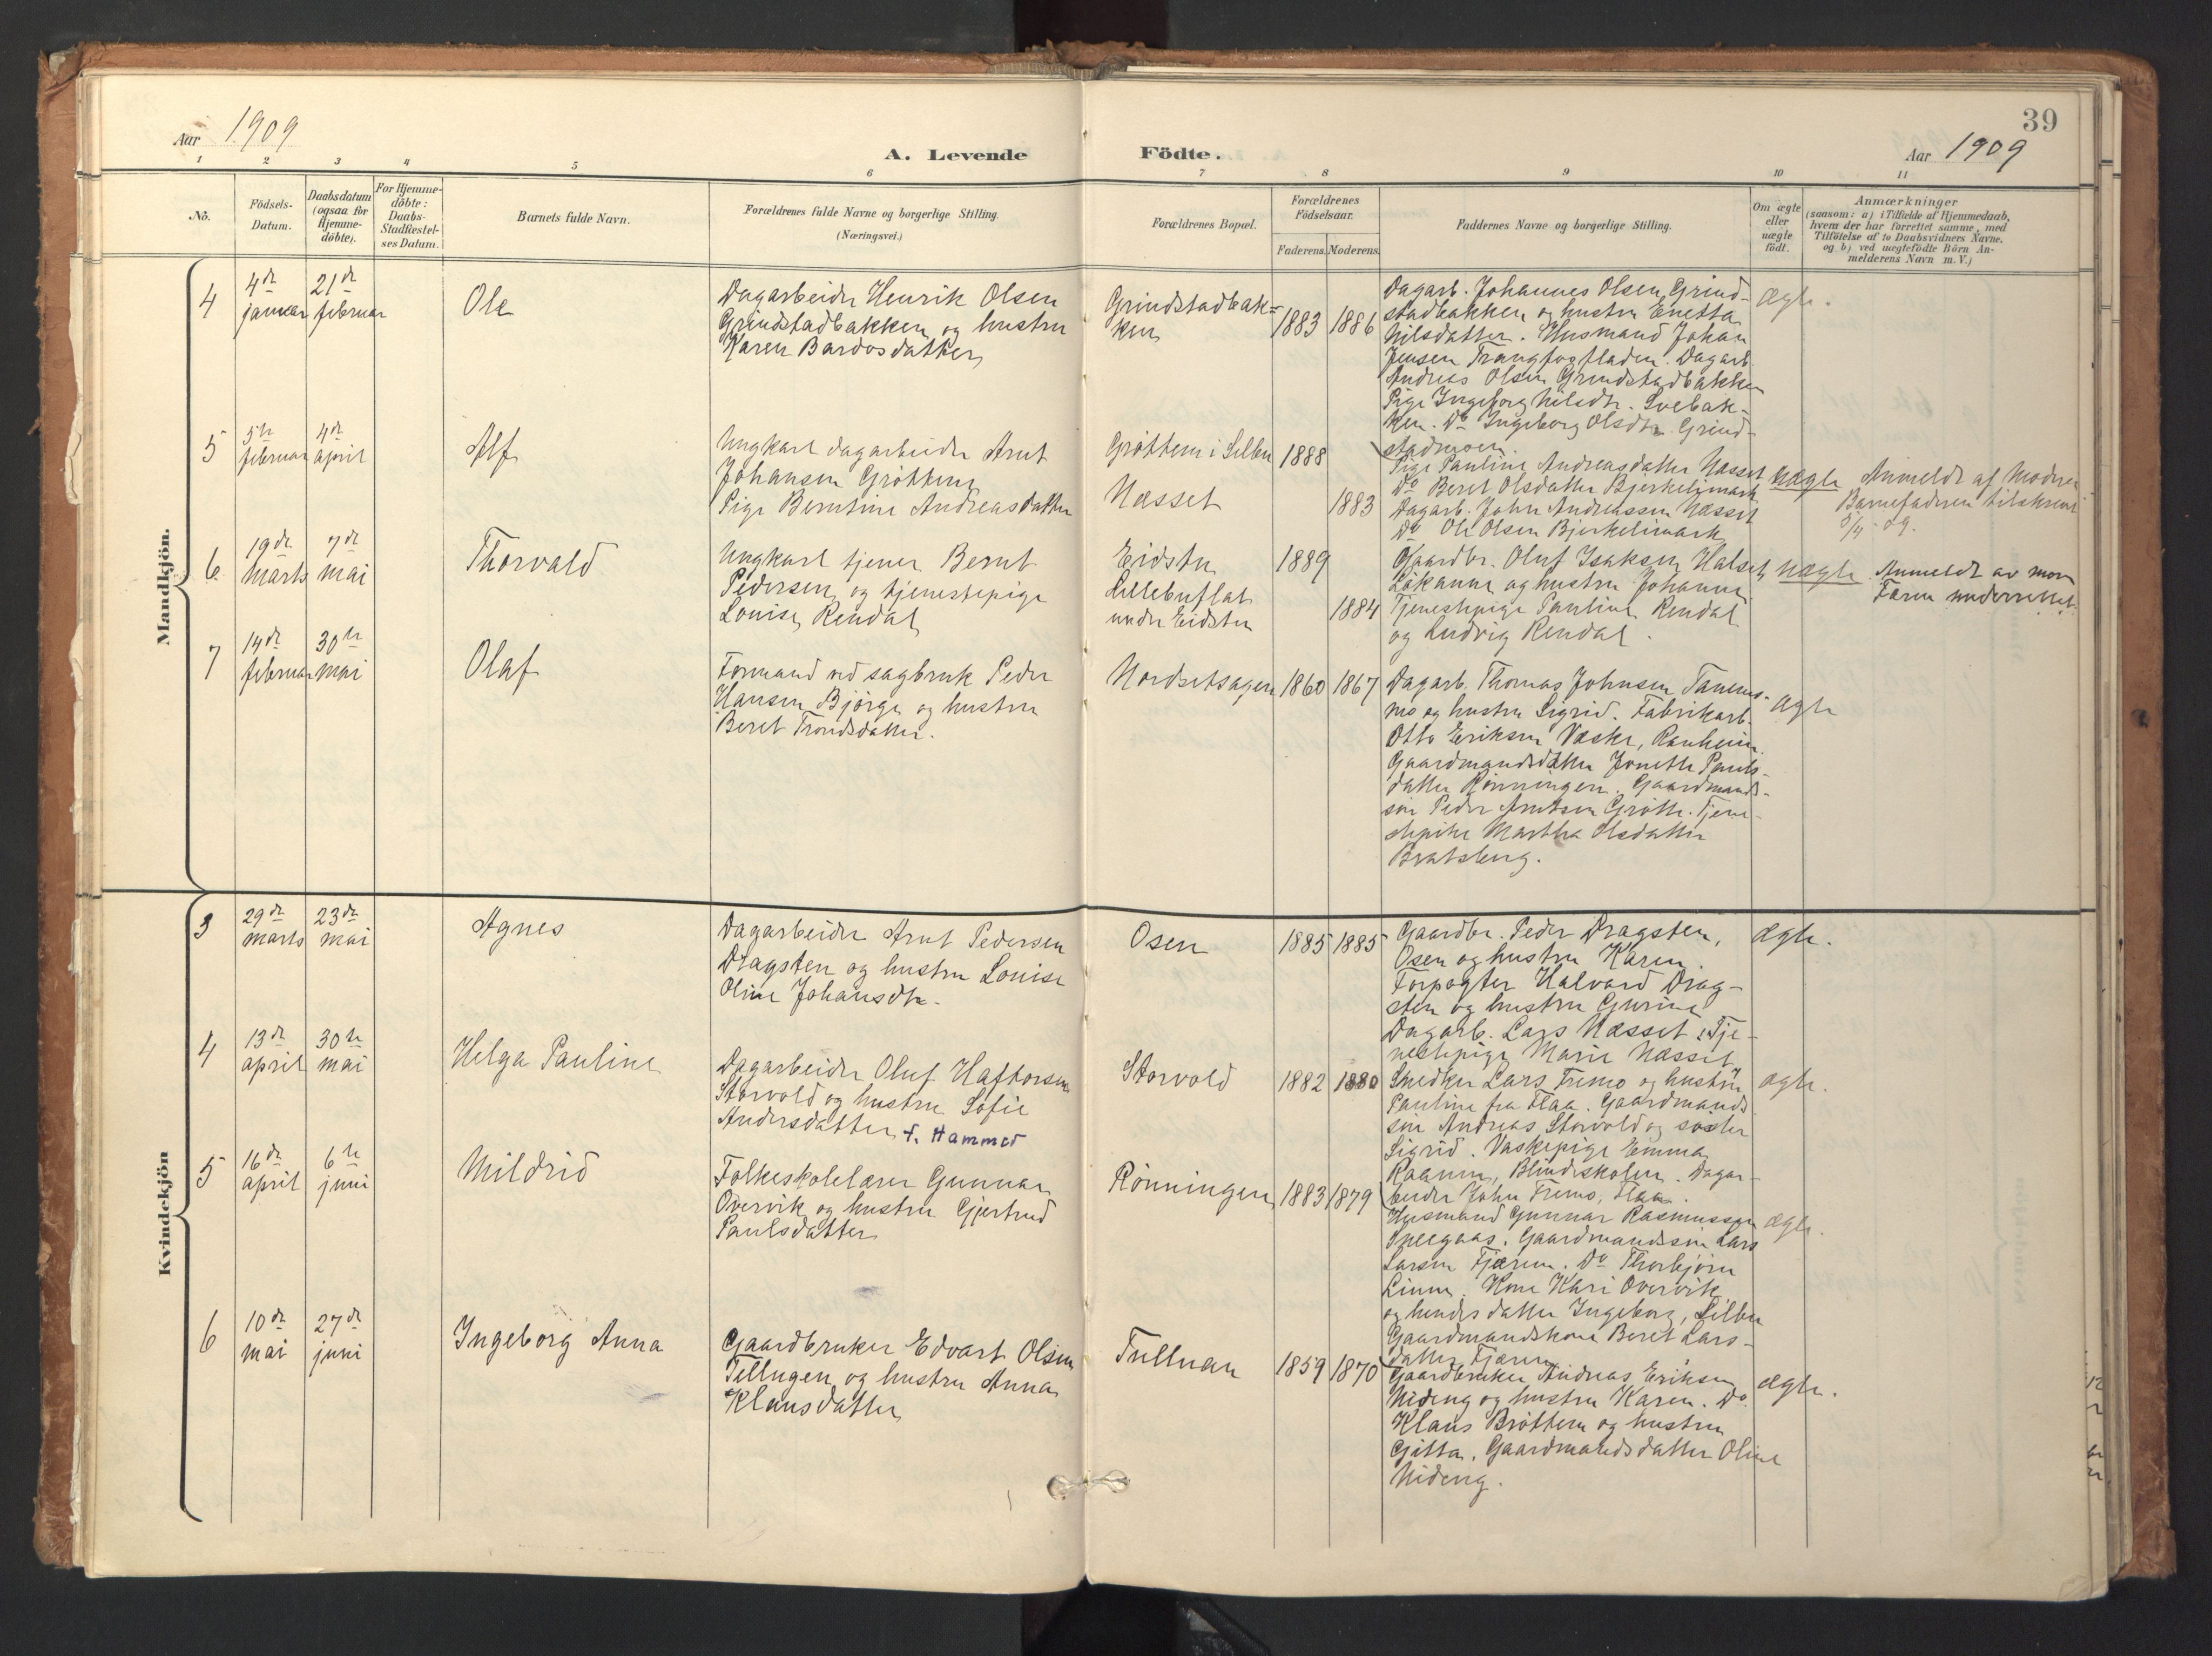 39
Aar 1909
A. Levende Födte.
Aar 1909
1 2 3 4 5 6 7 8 9 10 11
No.
Födsels-
Datum.
Daabsdatum
(ogsaa for
Hjemme-
döbte).
For Hjemme-
döbte:
Daabs-
Stadfæstel-
ses Datum.
Barnets fulde Navn.
Forældrenes fulde Navne og borgerlige Stilling.
(Næringsvei.)
Forældrenes Bopæl.
Forældrenes
Födselsaar.
Faderens. Moderens.
Faddernes Navne og borgerlige Stilling.
Om ægte
eller
uægte
födt.
Anmærkninger
(saasom: a) i Tilfælde af Hjemmedaab,
hvem der har forrettet samme, med
Tilföielse af to Daabsvidners Navne,
og b) ved uægtefödte Börn An-
melderens Navn m. V.)
Mandkjön.
4
4de
januar
21de
februar
Ole
Dagarbeider Henrik Olsen
Grindstadbakken og hustru
Karen Bardosdatter
Grindstadbak-
ken
1883 1886
Dagarb. Johannes Olsen Grind-
stadbakken og hustru Enetta
Nilsdatter. Husmand Johan
Jensen Trangfosfladen. Dagarb.
Andreas Olsen Grindstadbakken
Pige Ingeborg Nilsdtr. Svebak-
ken. Do Ingeborg Olsdtr. Grind-
stadmoen.
Ægte.
5
5te
februar
4de
april
Alf
Ungkarl dagarbeider Arnt
Johansen Gröttem
Pige Berntine Andreasdatter
Gröttem i Selbu
Næsset
1888
1883
Pige Pauline Andreasdatter Næsset
Do Beret Olsdatter Bjerkelimark
Dagarb. John Andreassen Næsset
Do Ole Olsen Bjerkelimark
Uægte
Anmeldt af Moderen
Barnefaderen tilskrevet
6
19de
marts
7de
mai
Thorvald
Ungkarl tjener Bernt
Pedersen og tjenestepige
Louise Rendal
Eidstu
Lillebuflat
under Eidstu
1889
1884
Gaardbr. Oluf Isaksen Halset,
Lökaune og hustru Johanna.
Tjenestepige Pauline Rendal
og Ludvig Rendal.
Uægte
Anmeldt av mora
Faren underrettet.
7
14de
februar
30te
mai
Olaf
Formand ved sagbruk Peder
Hansen Bjørge og hustru
Beret Trondsdatter.
Nordsetsagen
1860 1867
Dagarb. Thomas Johnsen Tanems-
mo og hustru Sigrid. Fabrikarb.
Otto Eriksen Væske, Ranheim.
Gaardmandsdatter Jonette Pauls-
datter Rönningen. Gaardmands-
søn Peder Arntsen Grötte. Tjene-
stepike Martha Olsdatter
Bratsberg.
Ægte
Kvindekjön
3
29de
marts
23de
mai
Agnes
Dagarbeider Arnt Pedersen
Dragsten og hustru Louise
Oline Johansdtr.
Osen
1885 1885
Gaardbr. Peder Dragsten,
Osen og hustru Karen.
Forpagter Halvard Drag-
sten og hustru Gurine
Dagarb. Lars Næsset. Tje-
nestepige Marie Næsset
Ægte.
4
13de
april
30te
mai
Helga Pauline
Dagarbeider Oluf Haftorsen
Storvold og hustru Sofie
Andersdatter f. Hammer
Storvold
1882 1880
Snedker Lars Tremo og hustru
Pauline fra Flaa. Gaardmands-
søn Andreas Storvold og søster
Sigrid. Vaskepige Emma
Raanum, Blindeskolen. Dagar-
beider John Tremo, Flaa.
Ægte.
5
16de
april
6te
juni
Mildrid
Folkeskolelærer Gunnar
Overvik og hustru Gjertrud
Paulsdatter
Rönningen
1883 1879
Husmand Gunnar Rasmussen
Gaardmandssøn Lars
Larsen Fjæren. Do Thorbjørn
Kone Kari Overvik
og hendes datter Ingeborg, Selbu
Gaardmandskone Beret Lars-
datter Fjæren
Ægte.
6
10de
mai
27de
juni
Ingeborg Anna
Gaardbruker Edvart Olsen
Tellugen og hustru Anna
Klausdatter
Tulluan
1859 1870
Gaardbruker Andreas Eriksen
Nideng og hustru Karen. Do
Klaus Bröttem og hustru
Gjitta. Gaardmandsdatter Oline
Nideng.
Ægte.